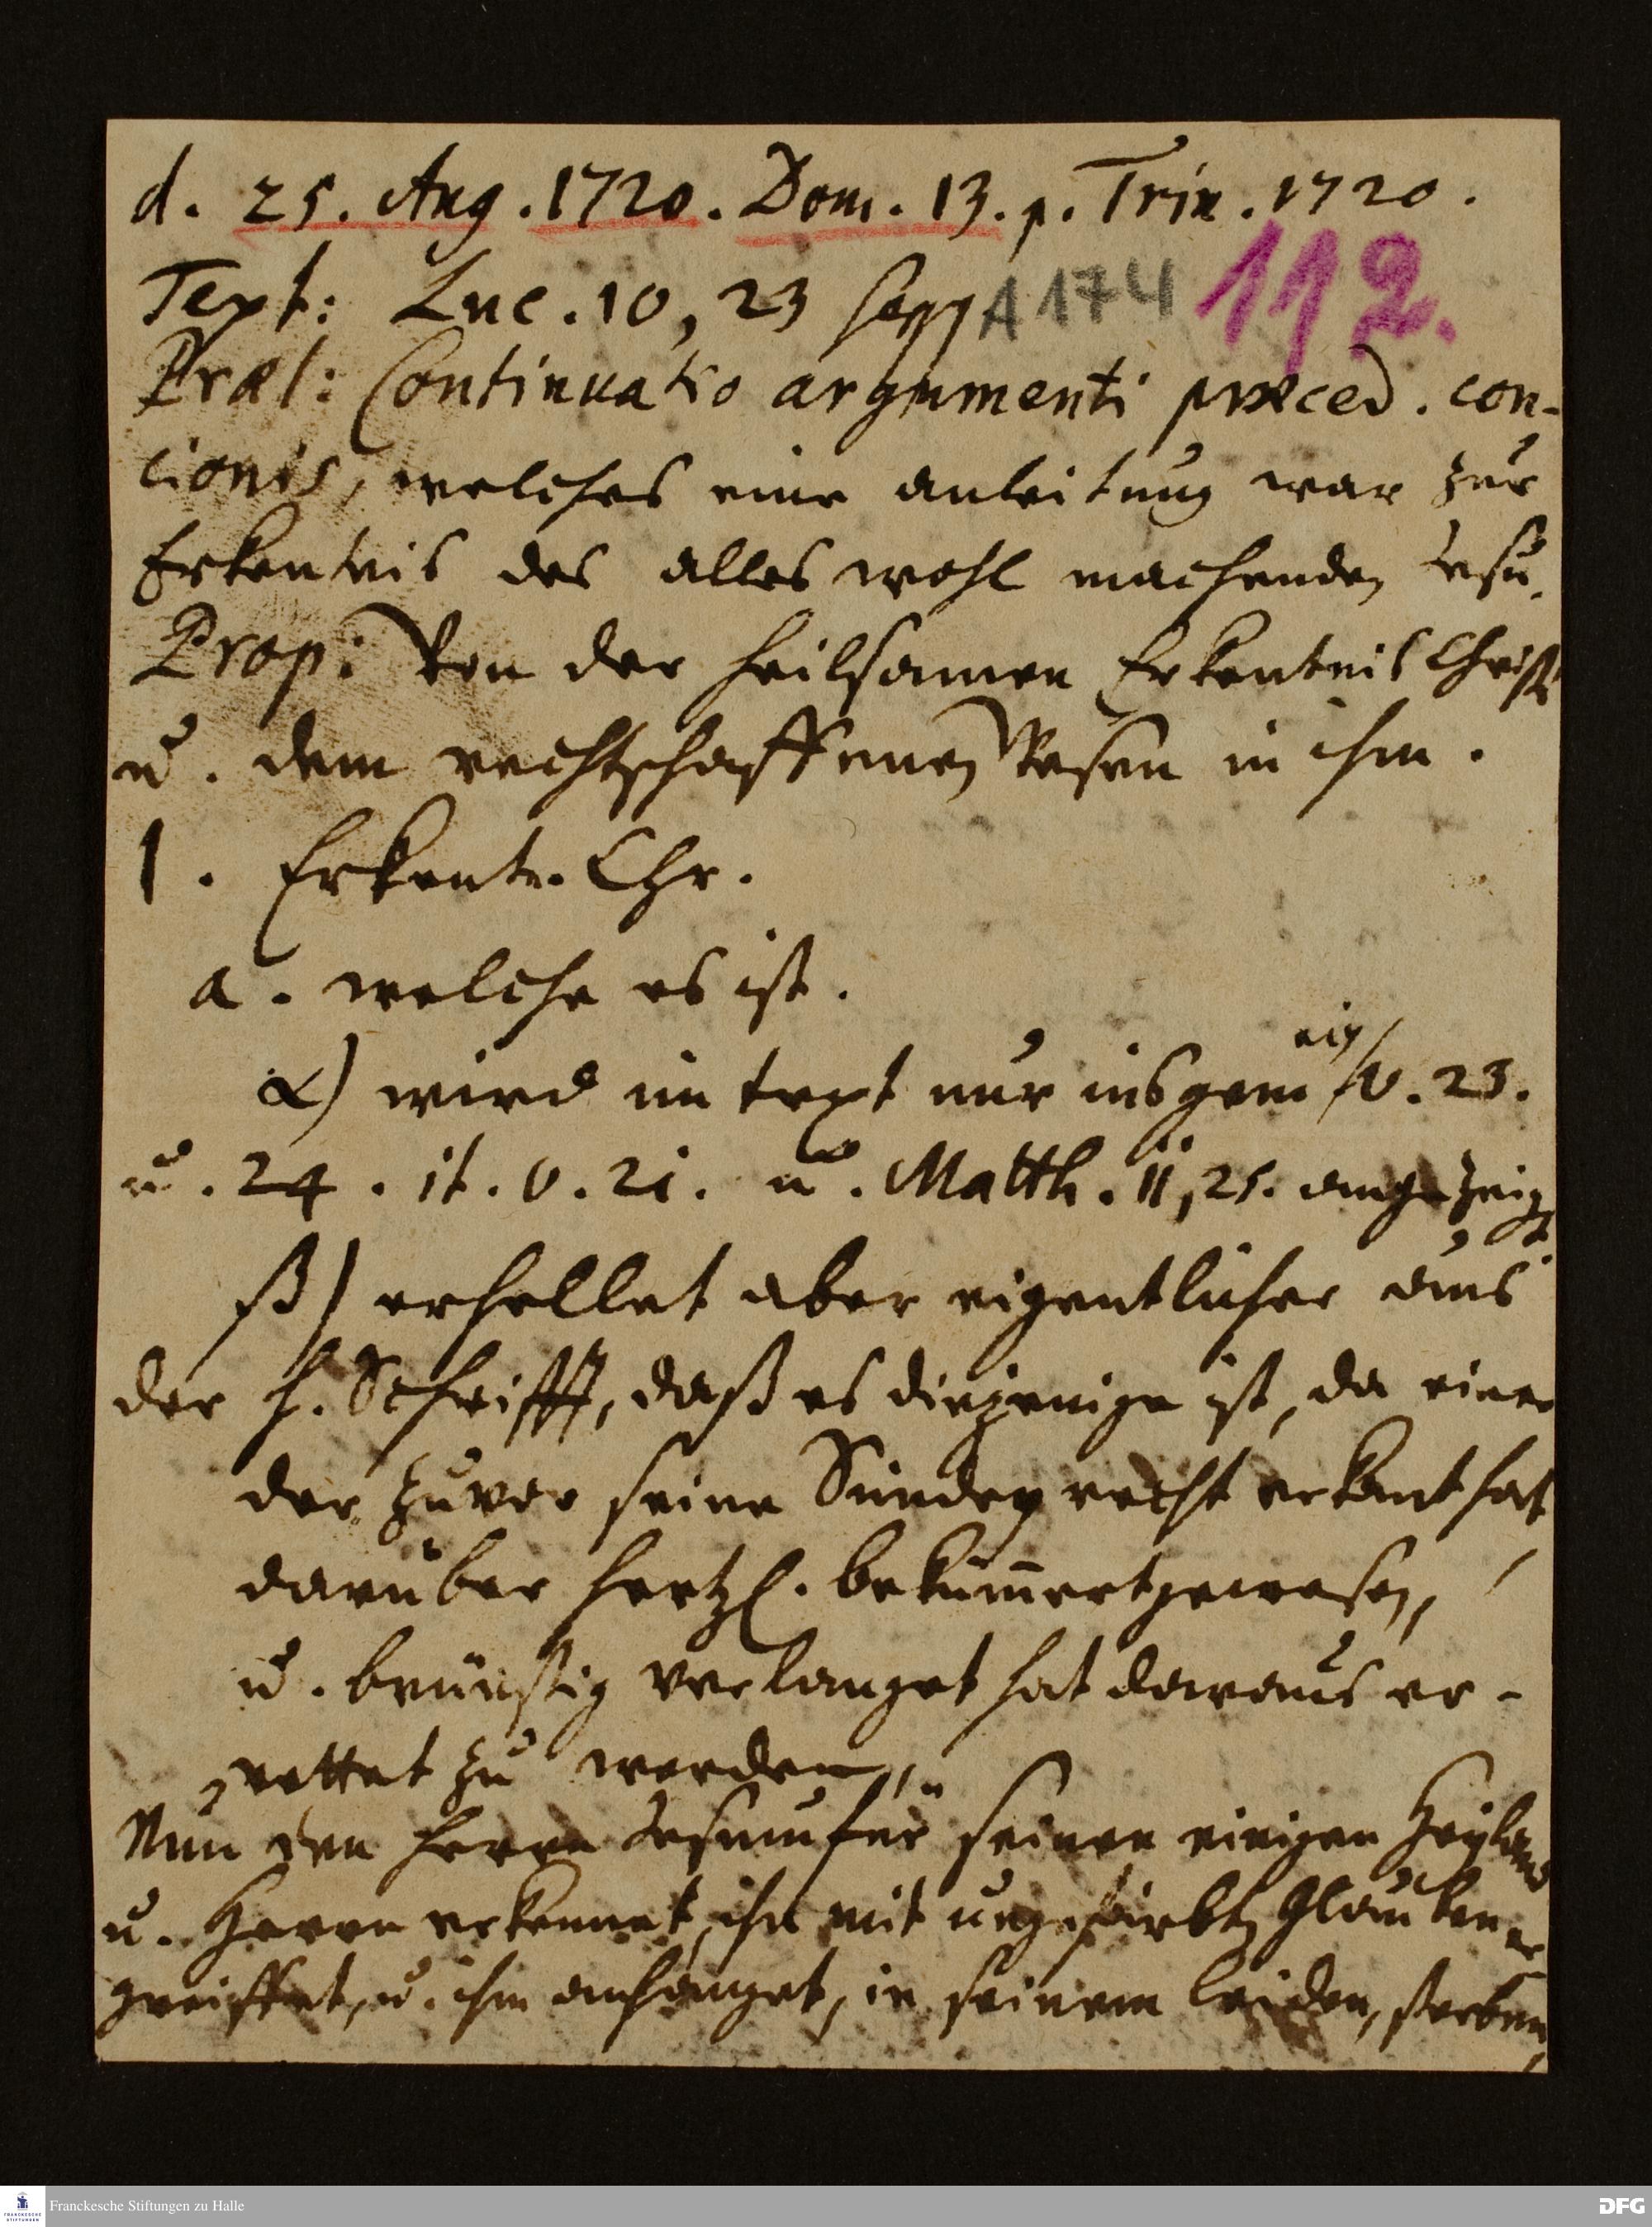 d. 25. Aug. 1720. Dom. 13. p. Trin. 1720.
Text: Luc. 10, 23 seqq A 174 112.
Præl: Continuatio argumenti præced. con-
cionis, welches eine anleitung war zur
Erkentnis des alles wohl machenden Jesu.
Prop: Von der heilsamen Erkentnis Christi
u. dem rechtschaffenen Wesen in ihm.
1. Erkentn. Chr.
a. welche es ist.
α) wird im text nur insgemein v. 23.
u. 24. it. v. 21. u. Matth. 11, 25. angezeigt.
β) erhellet aber eigentlicher aus
der h. Schrifft, daß es diejenige ist, da einer
der zuvor seine Sünden recht erkant hat,
darüber hertzl. bekümmert gewesen,
u. brünstig verlanget hat daraus er-
rettet zu werden,
Nun den Herrn Jesum für seinen einigen Heyland
u. Herrn erkennet, ihn mit ungefärbten Glauben er
greiffet, u. ihm anhanget, in seinem leiden, sterben,
Franckesche Stiftungen zu Halle
FRANCKESCHE STIFTUNGEN
DFG